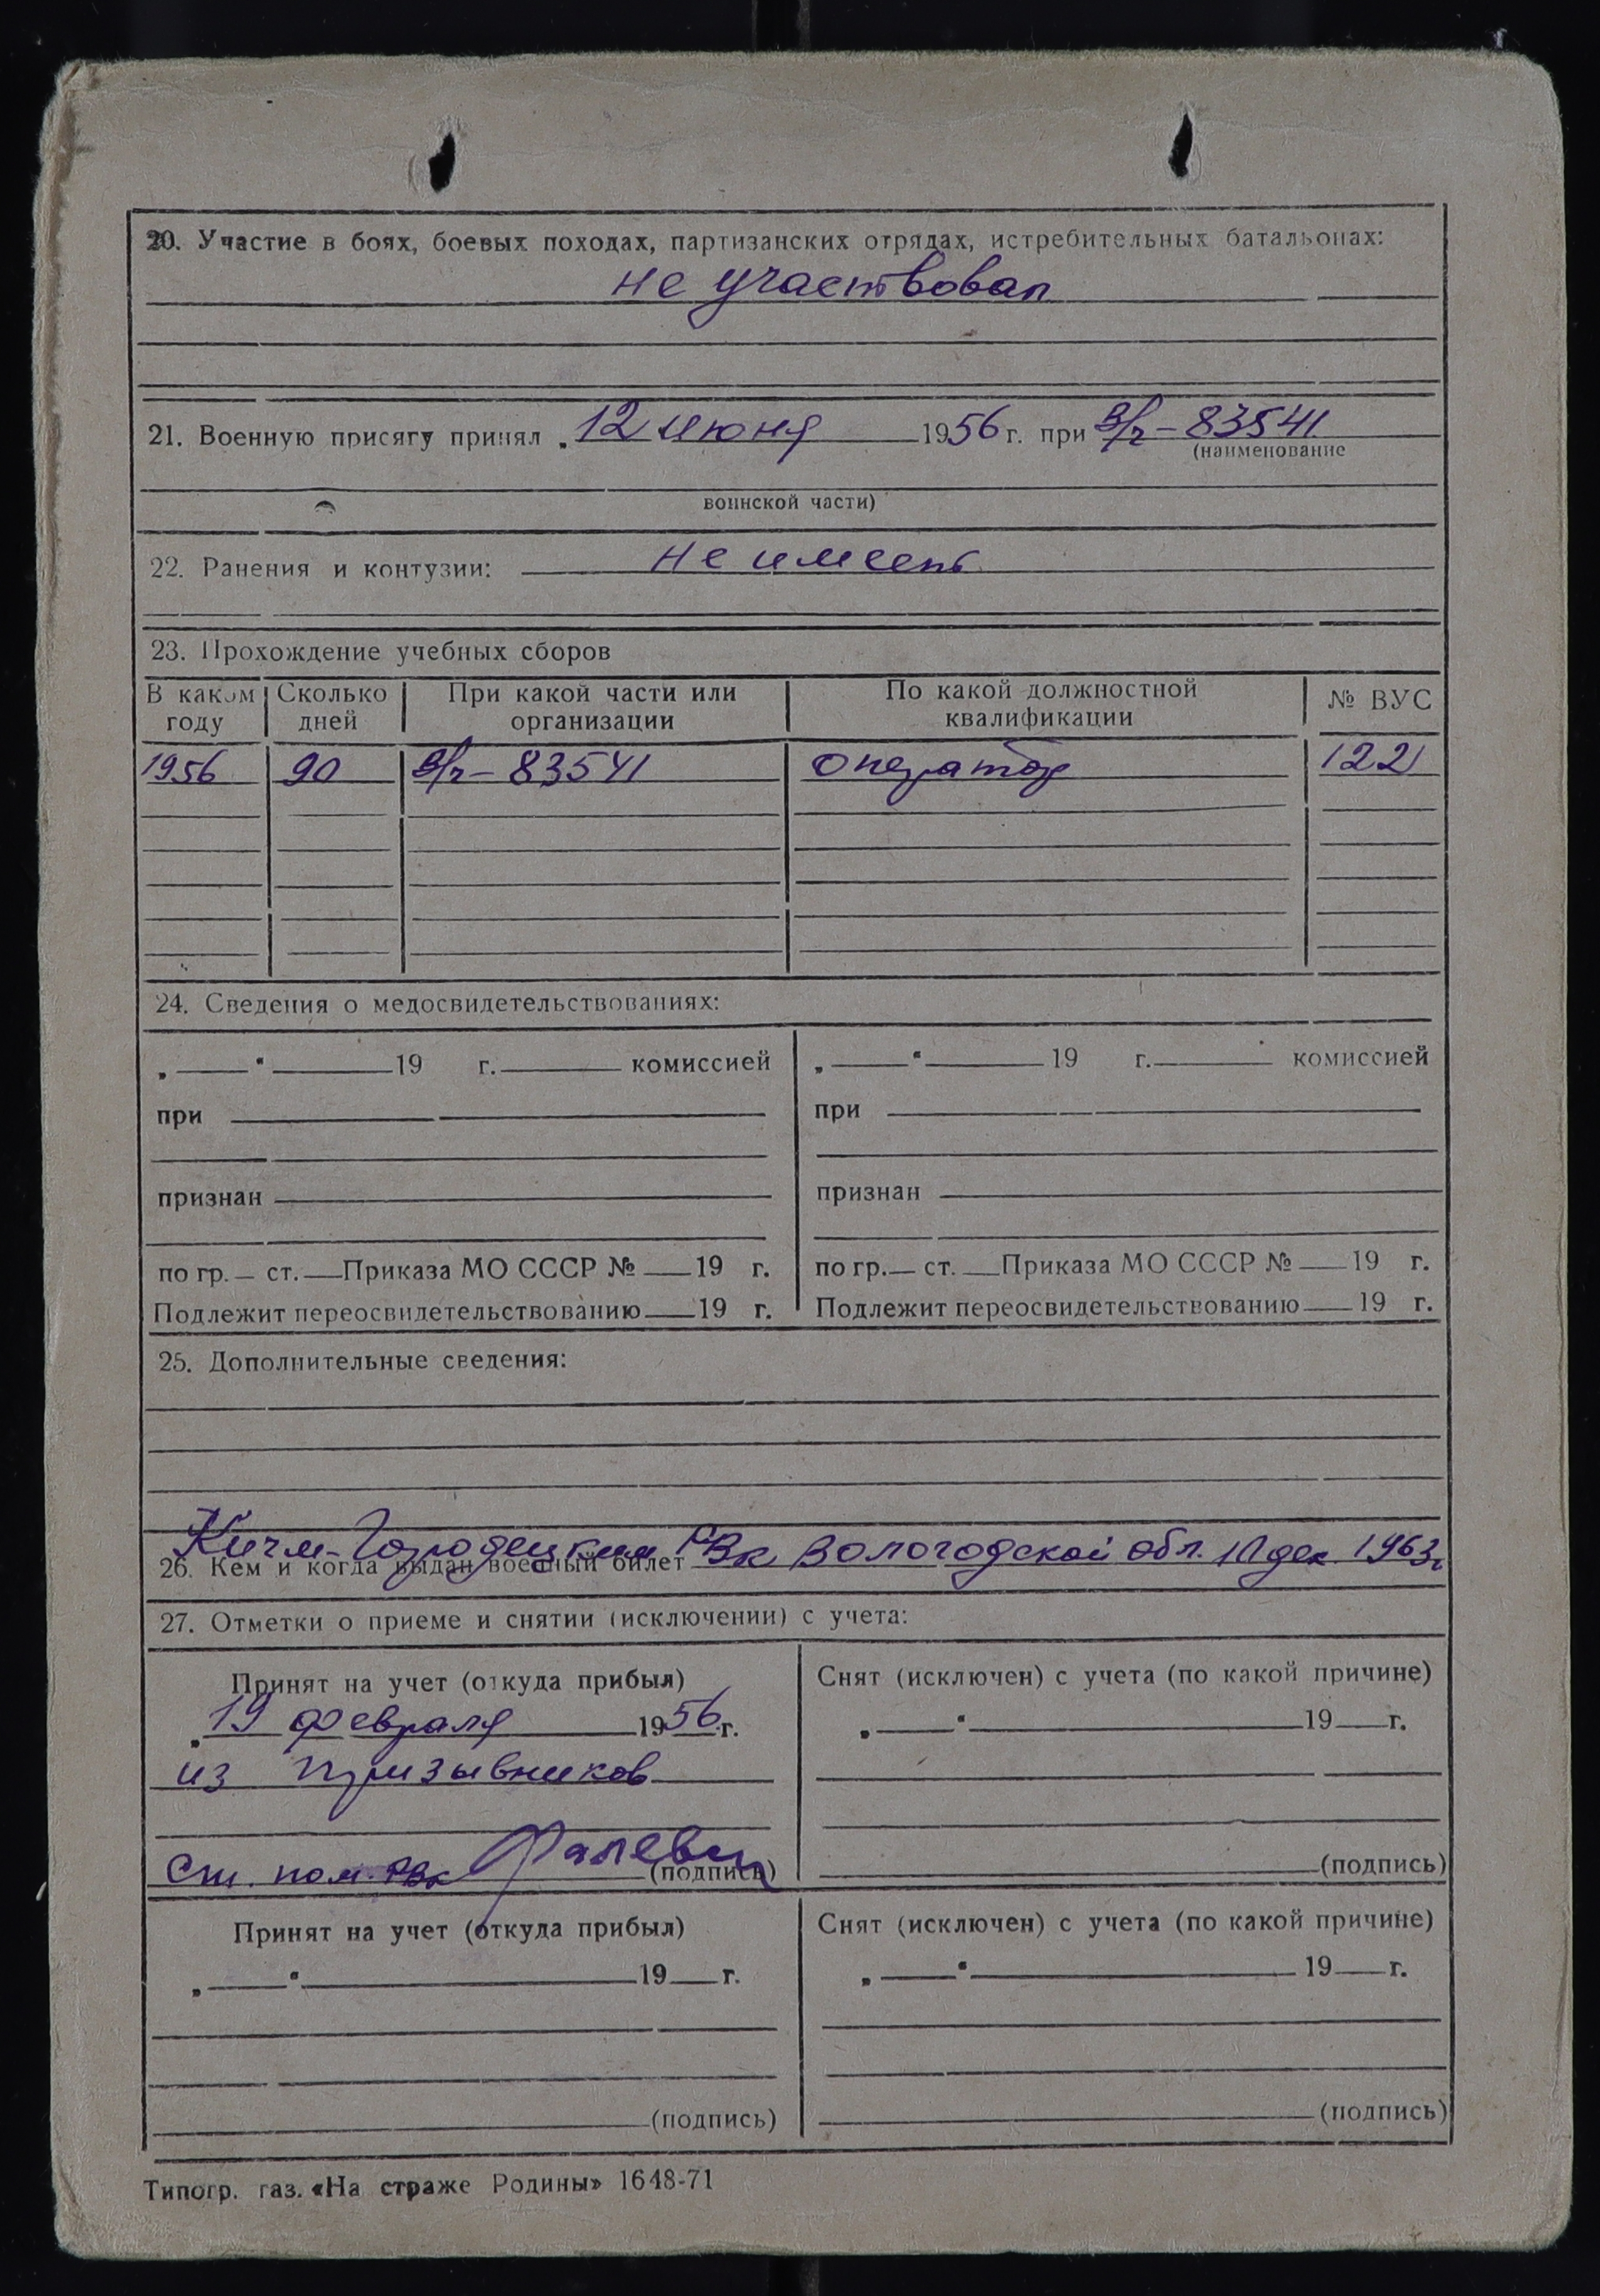 20. Участие в боях, боевых походах, партизанских отрядах, истребительных батальонах:
не участвовал
21. Военную присягу принял „12 июня 1956 г. при в/ч – 83541
(наименование
воинской части)
22. Ранения и контузии: не имеет
23. Прохождение учебных сборов
В каком году Сколько дней При какой части или организации По какой должностной квалификации № ВУС
1956 90 в/ч – 83541 оператор 122
24. Сведения о медосвидетельствованиях:
„ “ 19 г. комиссией „ “ 19 г. комиссией
при при
признан признан
по гр. ст. Приказа МО СССР № 19 г. по гр. ст. Приказа МО СССР № 19 г.
Подлежит переосвидетельствованию 19 г. Подлежит переосвидетельствованию 19 г.
25. Дополнительные сведения:
Кичм-Городецким РВк Вологодской обл. дек 1963г
26. Кем и когда выдан военный билет
27. Отметки о приеме и снятии (исключении) с учета:
Принят на учет (откуда прибыл) Снят (исключен) с учета (по какой причине)
„19 февраля 1956 г. „ “ 19 г.
из призывников
Ст. пом. РВк (подпись) (подпись)
Принят на учет (откуда прибыл) Снят (исключен) с учета (по какой причине)
„ “ 19 г. „ “ 19 г.
(подпись) (подпись)
Типогр. газ. «На страже Родины» 1648-71